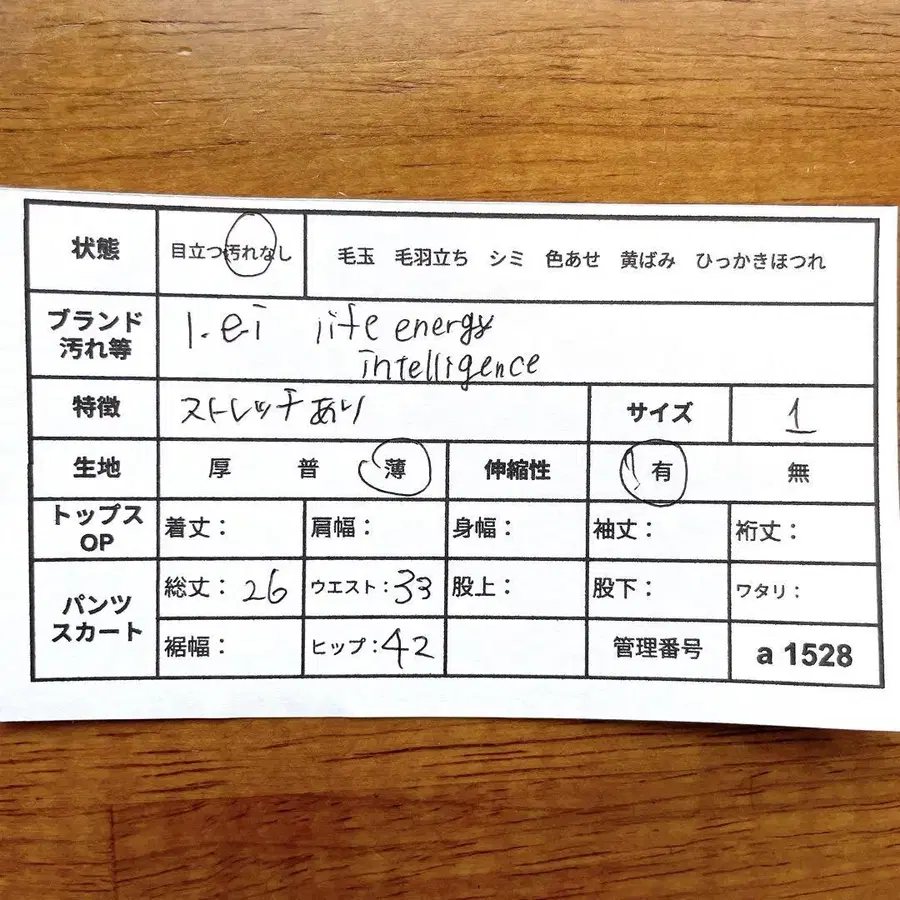 状態 目立つ汚れなし 毛玉 毛羽立ち シミ 色あせ 黄ばみ ひっかきほつれ
ブランド
汚れ等
l.ei life energy
intelligence
特徴 ストレッチあり サイズ 1
生地 厚 普 薄 伸縮性 有 無
トップス
OP
着丈： 肩幅： 身幅： 袖丈： 裄丈：
パンツ
スカート
総丈：26 ウエスト：33 股上： 股下： ワタリ：
裾幅： ヒップ：42 管理番号 a 1528